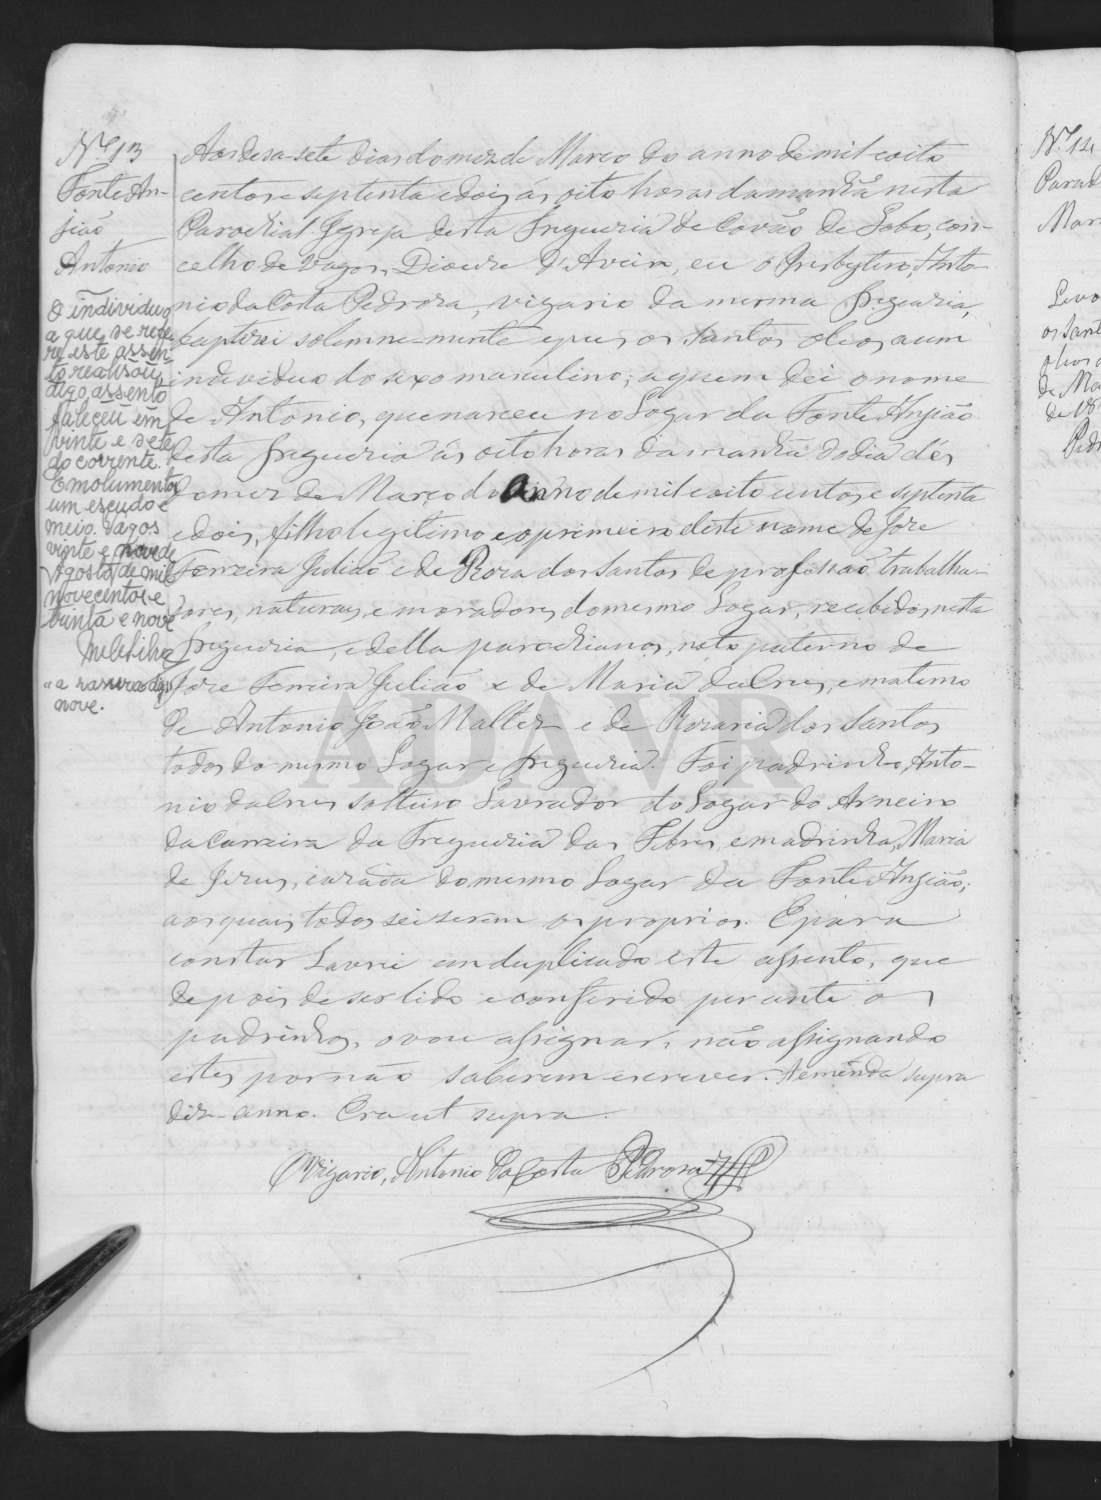 Nº 13
Fonte An-
jião
Antonio
O individuo
a que se refe-
re este assen-
to realisou
digo, assento
faleceu em
vinte e sete
do corrente.
Emolumentos
um escudo e
meio. Vagos
vinte e nove de
Agosto de mil
novecentos e
trinta e nove
"a rasura diz"
nove.
Aos desa-sete dias do mez de Março do anno de mil e oito
centos e septenta e dois, ás oito horas da manhã nesta
Parochial Igreja desta freguezia de Covão de Lobo, con-
celho de Vagos, Diocese d'Aveiro, eu o Presbytero, Anto-
nio da Costa Pedroza, vigario da mesma freguezia,
baptizei solemne-mente e puz os santos oleos a um
individuo do sexo masculino; a quem dei o nome
de Antonio, que nasceu no Logar da Fonte Anjião
desta freguezia ás oito horas da manhã do dia dés
do mez de Março do anno de mil e oito centos e septenta
e dois, filho legitimo e o primeiro deste nome de Joze
Ferreira Julião e de Roza dos Santos de profissão trabalha-
dores, naturaes e moradores do mesmo Logar, recebidos nesta
freguezia, e della parochianos, neto paterno de
Joze Ferreira Julião e de Maria da Cruz, e materno
de Antonio João Malter e de Rozaria dos Santos
todos do mesmo Logar e freguezia. Foi padrinho, Anto-
nio da Cruz solteiro Lavrador do Logar do Arneiro
da Carreira da Freguezia das Febres, e madrinha, Maria
de Jezus, cazada do mesmo Logar da Fonte Anjião;
aos quaes todos sei serem os proprios. E para
constar Lavrei em duplicado este assento, que
depois de ser lido e conferido perante os
padrinhos, o vou assignar, não assignando
estes por não saberem escrever. A emenda supra
diz - anno. Era ut supra.
O Vigario, Antonio da Costa Pedroza
ADAVR
Nº 14
Parad
Mar
Levo
os sant
oleos
de Ma
de 18
Ped